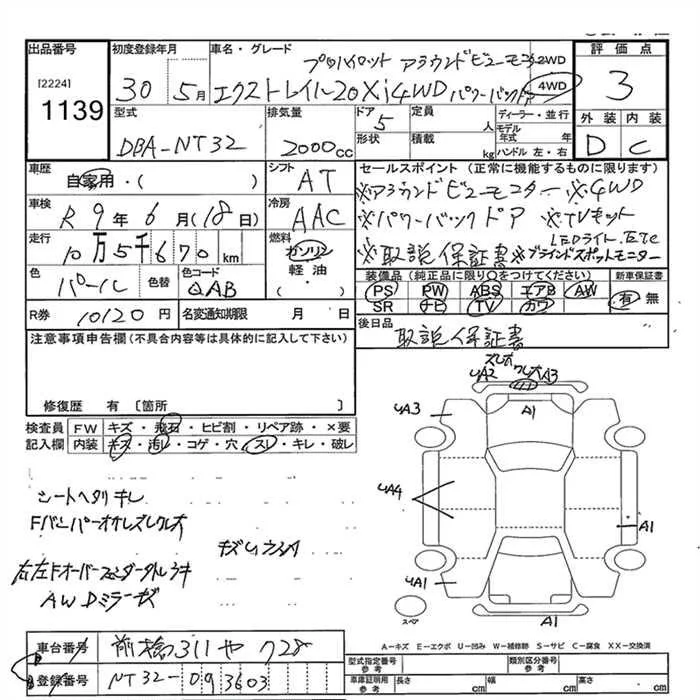 出品番号
[2224]
1139
初度登録年月
30 5月
車名・グレード
プロパイロット アラウンドビューモニ 2WD
エクストレイル20Xi4WD パワーバックドア 4WD
評価点
3
型式
DBA-NT32
排気量
2000cc
ドア
5
定員
人
形状
積載
kg
ディーラー・並行
モデル年式 年
ハンドル 左・右
外装 内装
D C
車歴
自家用・( )
シフト
AT
車検
R 9年6月(18日)
冷房
AAC
走行
10万5千670km
燃料
ガソリン
軽油
( )
色
パール
色替
色コード
QAB
R券 10120円
名変通知期限 月 日
セールスポイント(正常に機能するものに限ります)
※アラウンドビューモニター ※4WD
※パワーバックドア ※TVキット
LEDライト、ETC
※取説保証書 ※ブラインドスポットモニター
装備品(純正品に限り○をつけてください)
PS PW ABS エアB AW
SR ナビ TV カワ
新車保証書
有 無
後日品
取説保証書
注意事項申告欄(不具合内容等は具体的に記入して下さい)
修復歴 有〔箇所 〕
検査員記入欄
FW キズ・飛石・ヒビ割・リペア跡・×要
内装 キズ・汚レ・コゲ・穴・スレ・キレ・破レ
シートヘタリキレ
Fバンパーオサレズレクレオ
右左Fオーバーフェンダー外レ浮キ
AWDミラーキズ
ズレオ
ワレオ
4A2
A3
A1
4A3
4A4
A1
4A1
A1
スペア
A-キズ E-エクボ U-凹み W-補修跡 S-サビ C-腐食 XX-交換済
車台番号
前橋311や728
登録番号
NT32-093603
型式指定番号
参考
類別区分番号
参考
車庫証明用
参考
長さ cm
幅 cm
高さ cm